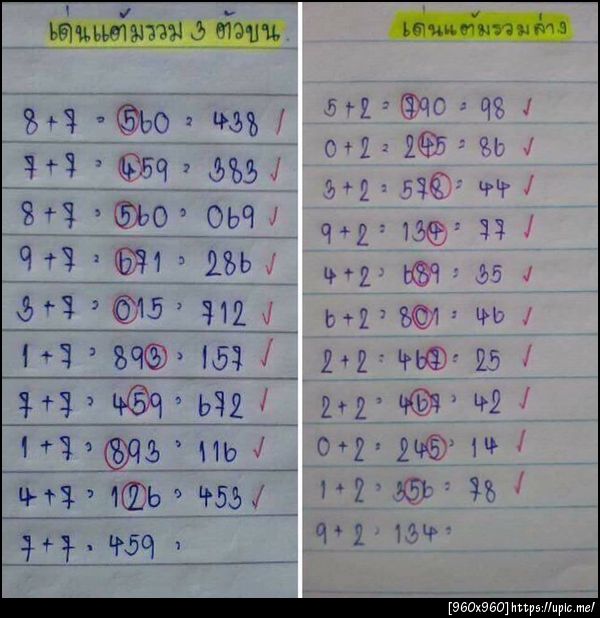 เด่นแต้มรวม 3 ตัวบน
8+7 = 560 = 438 ✓
7+7 = 459 = 383 ✓
8+7 = 560 = 069 ✓
9+7 = 671 = 286 ✓
3+7 = 015 = 712 ✓
1+7 = 893 = 157 ✓
7+7 = 459 = 672 ✓
1+7 = 893 = 116 ✓
4+7 = 126 = 453 ✓
7+7 = 459 =
เด่นแต้มรวมล่าง
5+2 = 790 = 98 ✓
0+2 = 245 = 86 ✓
3+2 = 578 = 44 ✓
9+2 = 134 = 77 ✓
4+2 = 689 = 35 ✓
6+2 = 801 = 46 ✓
2+2 = 467 = 25 ✓
2+2 = 467 = 42 ✓
0+2 = 245 = 14 ✓
1+2 = 356 = 78 ✓
9+2 = 134 =
[960x960]https://upic.me/